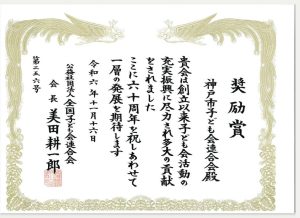 奨励賞
神戸市子ども会連合会殿
貴会は創立以来子ども会活動の
充実振興に尽力され多大の貢献
をされました
ここに六十周年を祝しあわせて
一層の発展を期待します
令和六年十一月十六日
公益社団法人全国子ども会連合会
会長 美田耕一郎
第二五六号